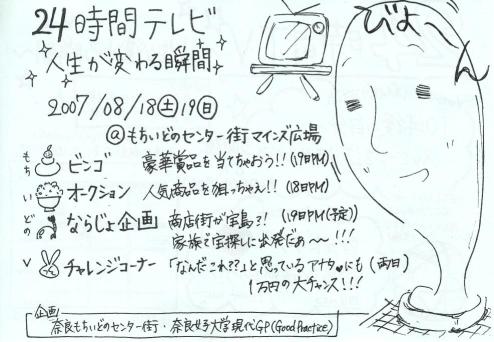 24時間テレビ
びよ〜ん
人生が変わる瞬間
2007/08/18土19日
@もちいどのセンター街マインズ広場
もち ビンゴ 豪華賞品を当てちゃおう!! (19日PM)
い オークション 人気商品を狙っちゃえ!! (18日PM)
どの ならじょ企画 商店街が宝島?! (19日PM(予定))
家族で宝探しに出発だぁ〜!!!
V チャレンジコーナー 「なんだこれ??」と思っているアナタ♥にも (両日)
1万円の大チャンス!!!
企画
奈良もちいどのセンター街・奈良女子大学現代GP(Good Practice)